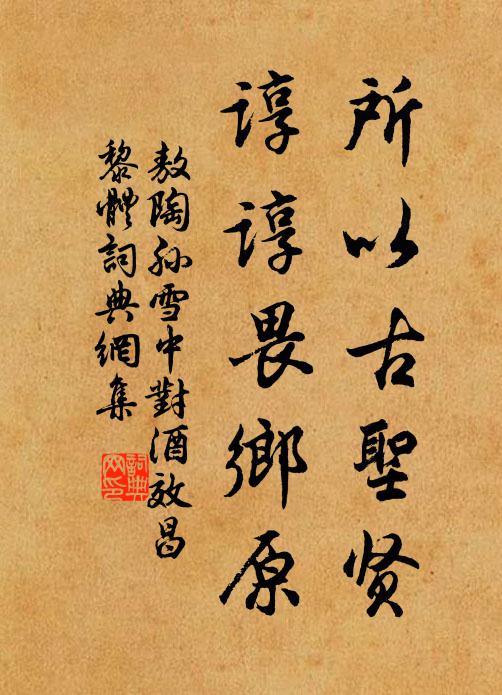 所以古聖贤
諄諄畏鄉原
敖陶孙雪中對酒效昌
黎體詞典網集
詞典网印